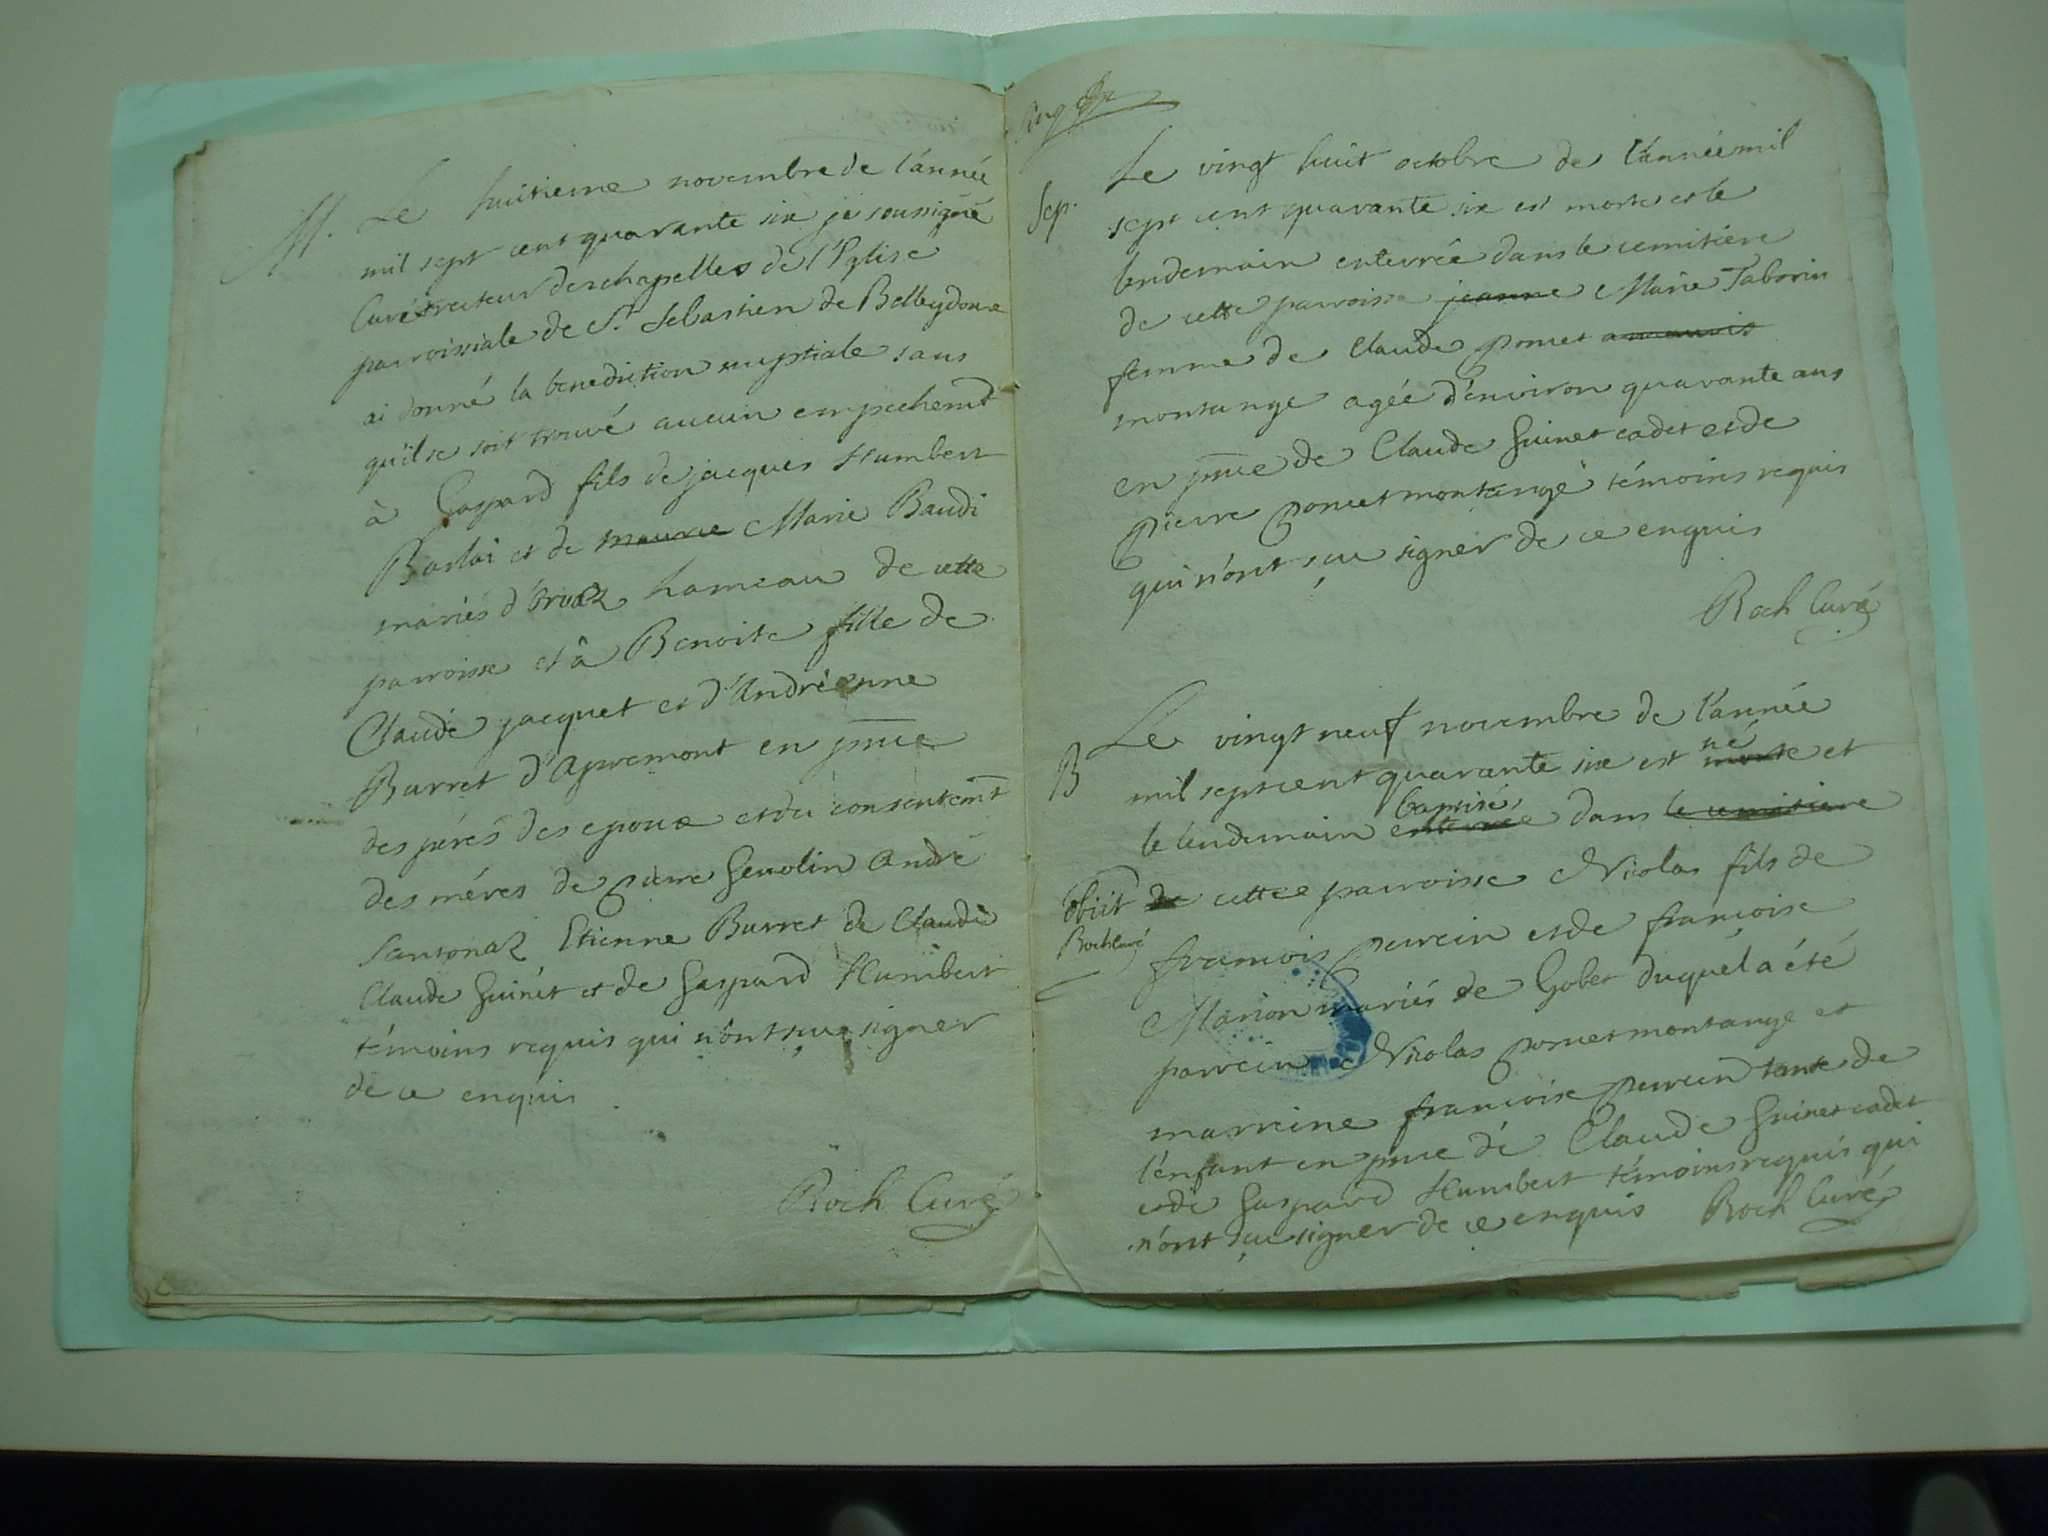 M. Le huitieme novembre de l'année
mil sept cent quarante six je soussigné
Curé recteur des chapelles de l'Eglise
parroissiale de St. Sebastien de Belleydoux
ai donné la benediction nuptiale sans
qu'il se soit trouvé aucun empechemt
à Gaspard fils de jacques Humbert
Barlai et de maurice Marie Baudi
mariés d'Orvaz hameau de cette
parroisse et à Benoite fille de
Claude jacquet et d'Andréanne
Burret d'Apremont en pnce
des péres des epoux et du consentemt
des méres de Pierre Genolin André
Santonaz Etienne Burret de Claude
Claude Guinet et de Gaspard Humbert
témoins requis qui n'ont sçu signer
de ce enquis
Roch Curé
Sep. Le vingt huit octobre de l'année mil
sept cent quarante six est morte et le
lendemain enterrée dans le cemitiere
de cette parroisse jeanne Marie Taborin
femme de Claude poncet
montange agée d'environ quarante ans
en pnce de Claude Guinet cadet et de
Pierre poncet montange témoins requis
qui n'ont sçu signer de ce enquis
Roch Curé
B Le vingt neuf novembre de l'année
mil sept cent quarante six est morte né et
le lendemain enterrée baptisé dans le cemitiere
obiit de cette parroisse Nicolas fils de
Roch curé
francois perrein et de francoise
Marion mariés de Gobet duquel a été
parrein Nicolas poncet montange et
marreine francoise perrein tante de
l'enfant en pnce de Claude Guinet cadet
et de Gaspard Humbert témoins requis qui
n'ont sçu signer de ce enquis Roch Curé